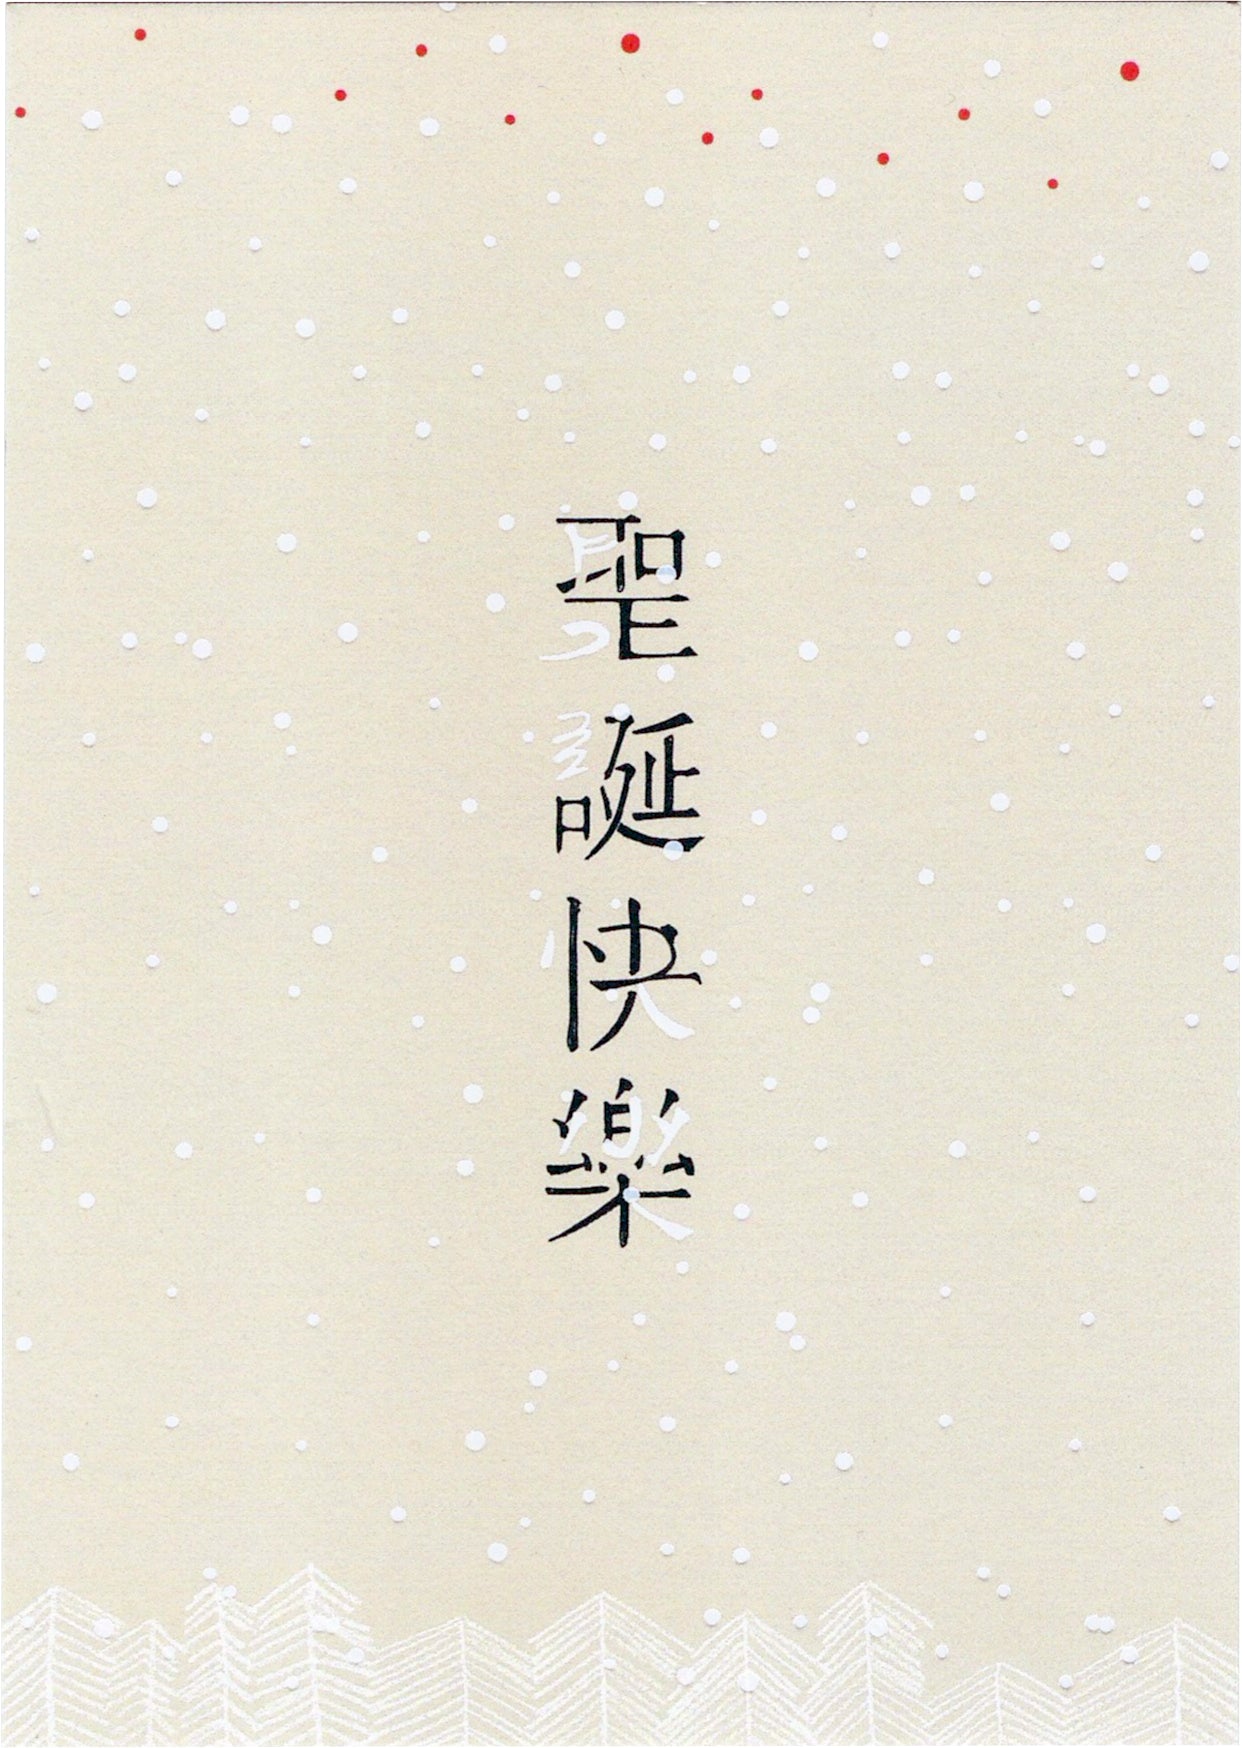 聖誕快樂